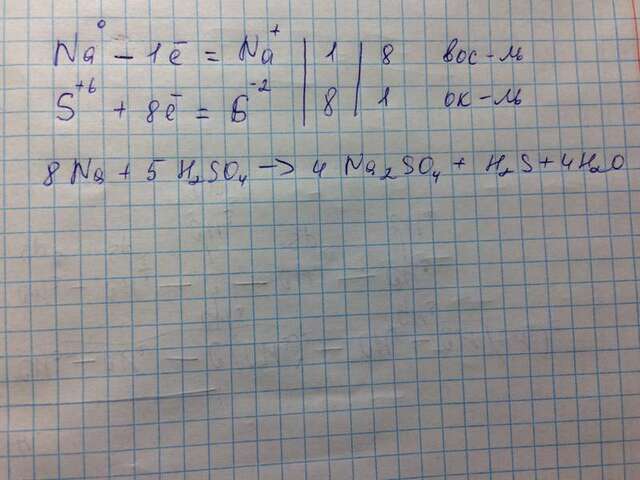 Na⁰ - 1ē = Na⁺ | 1 | 8 вос-ль
S⁺⁶ + 8ē = S⁻² | 8 | 1 ок-ль
8 Na + 5 H₂SO₄ -> 4 Na₂SO₄ + H₂S + 4H₂O